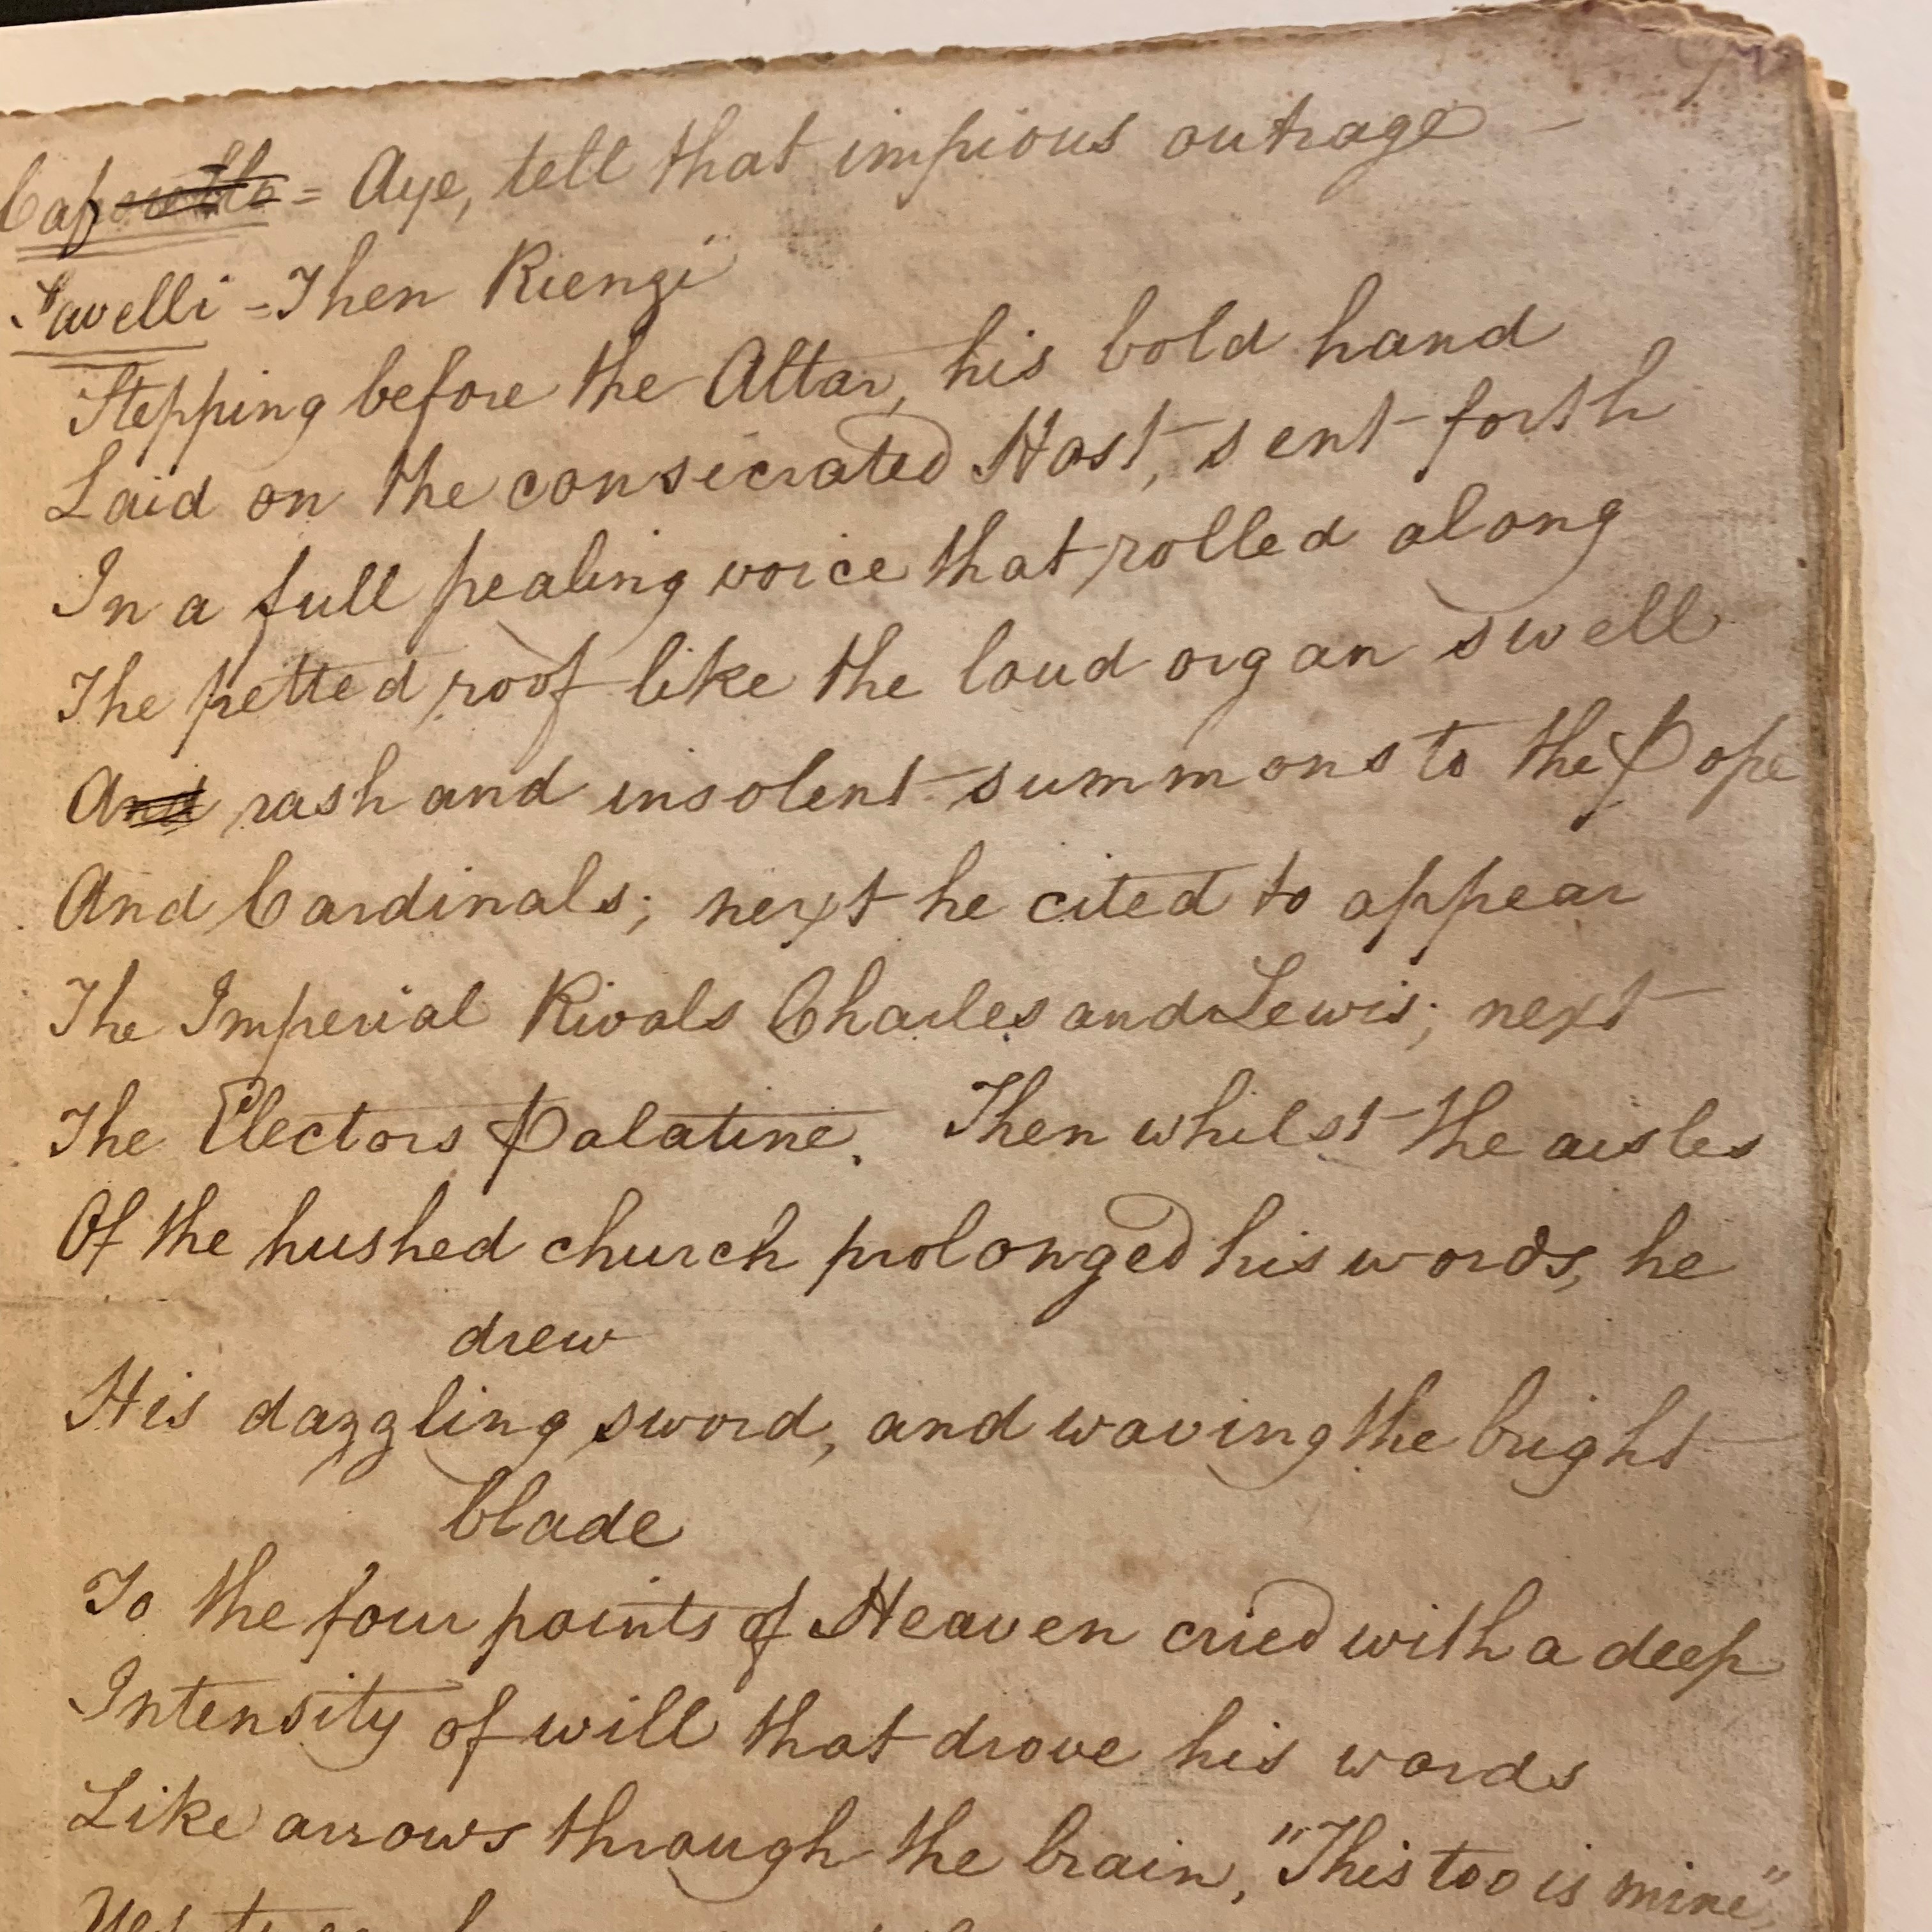 Caporetto = Aye, tell that impious outrage —
Savelli = Then Rienzi
Stepping before the Altar, his bold hand
Laid on the consecrated Host, sent forth
In a full pealing voice that rolled along
The fretted roof like the loud organ swell
And rash and insolent summons to the Pope
And Cardinals; next he cited to appear
The Imperial Rivals Charles and Lewis; next
The Electors Palatine. Then whilst the aisles
Of the hushed church prolonged his words, he
drew
His dazzling sword, and waving the bright
blade
To the four points of Heaven cried with a deep
Intensity of will that drove his words
Like arrows through the brain, "This too is mine"